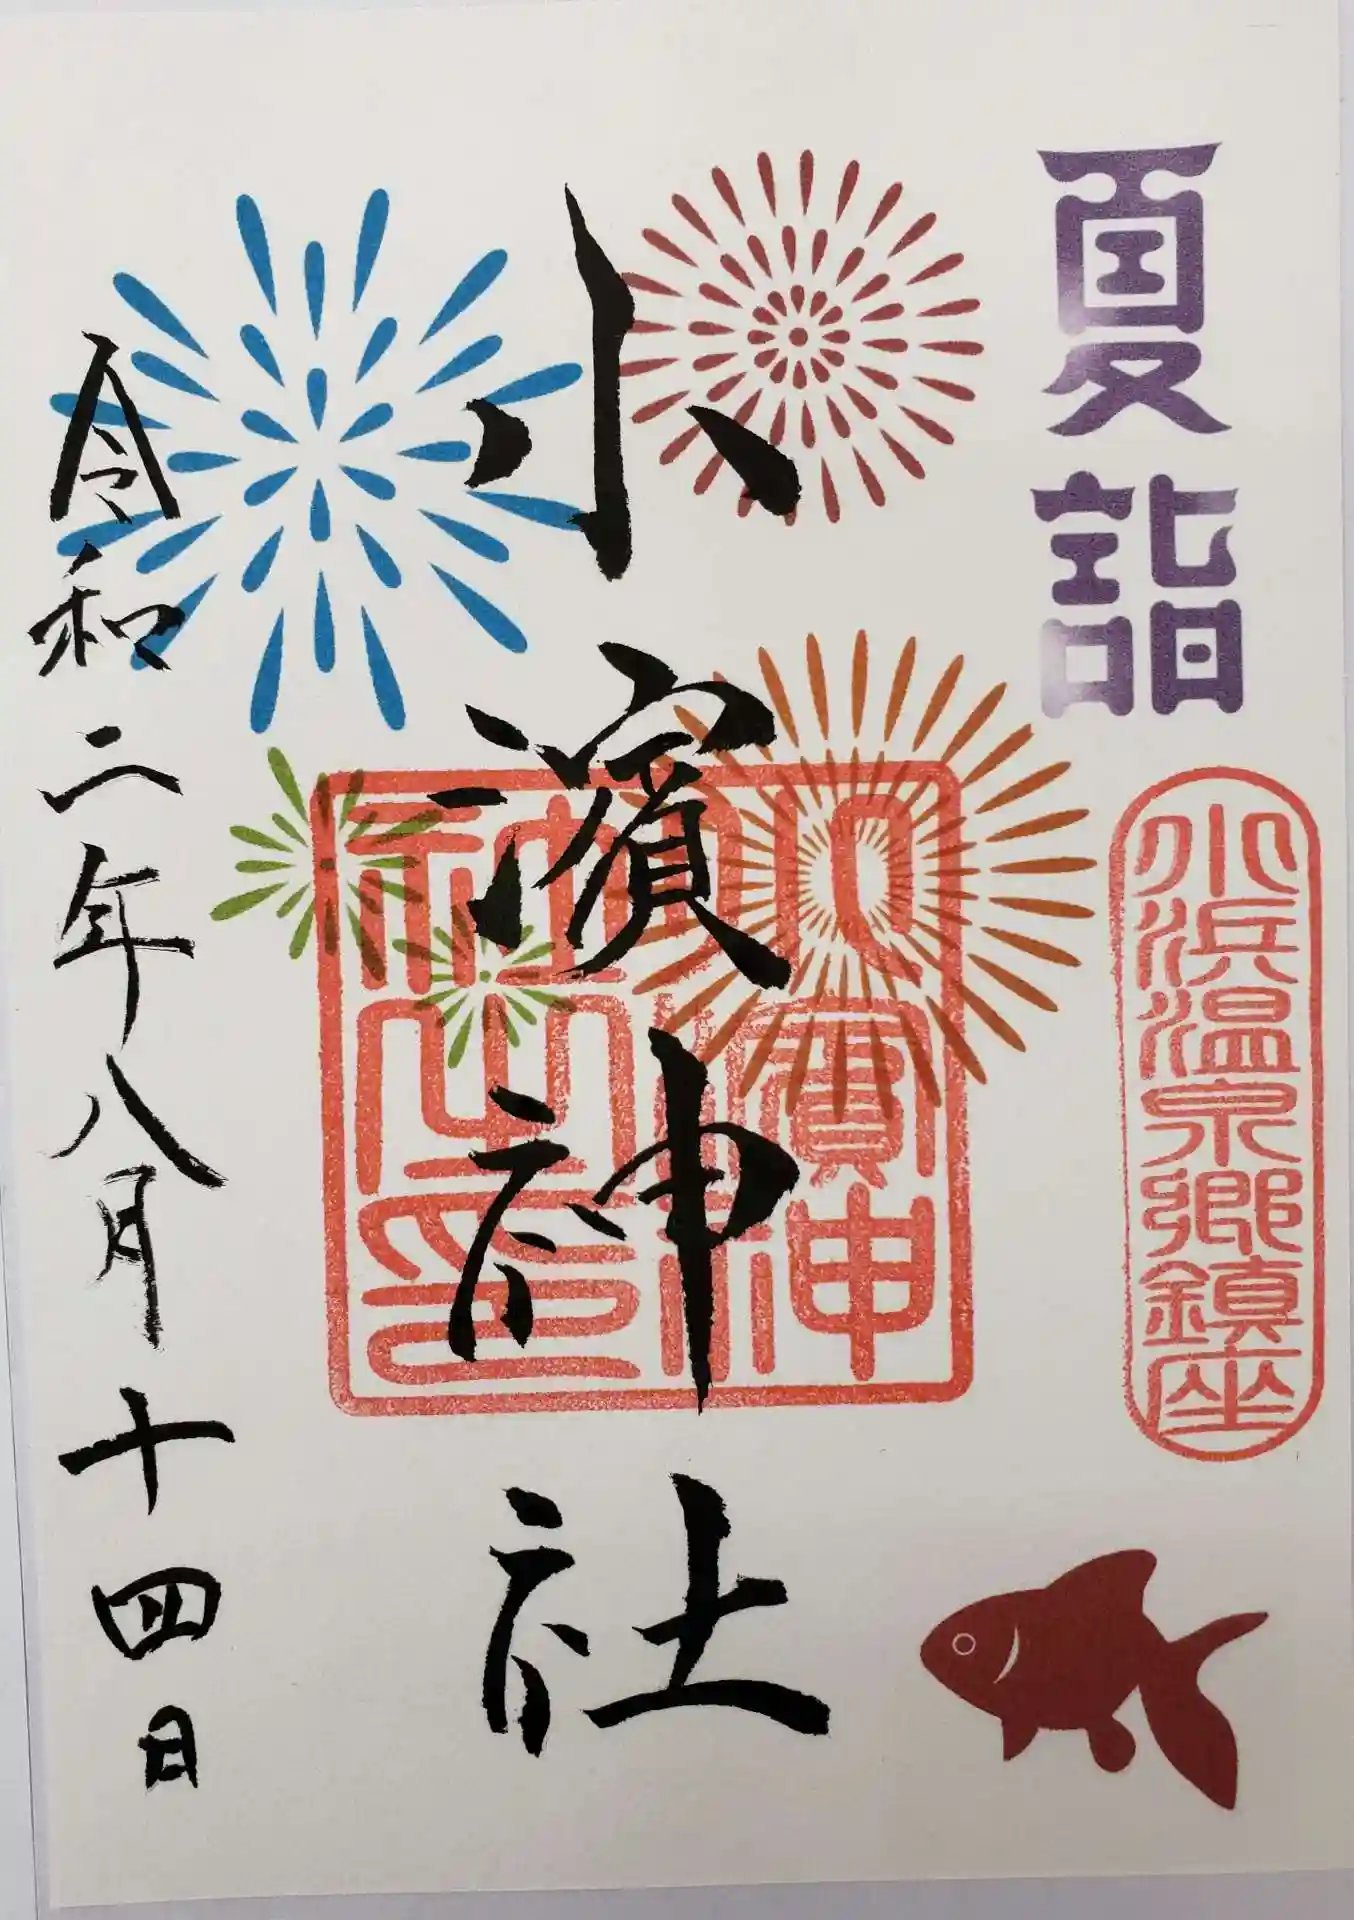 夏詣
小浜温泉郷鎮座
小濱神社
小濱神
社之印
令和二年八月十四日